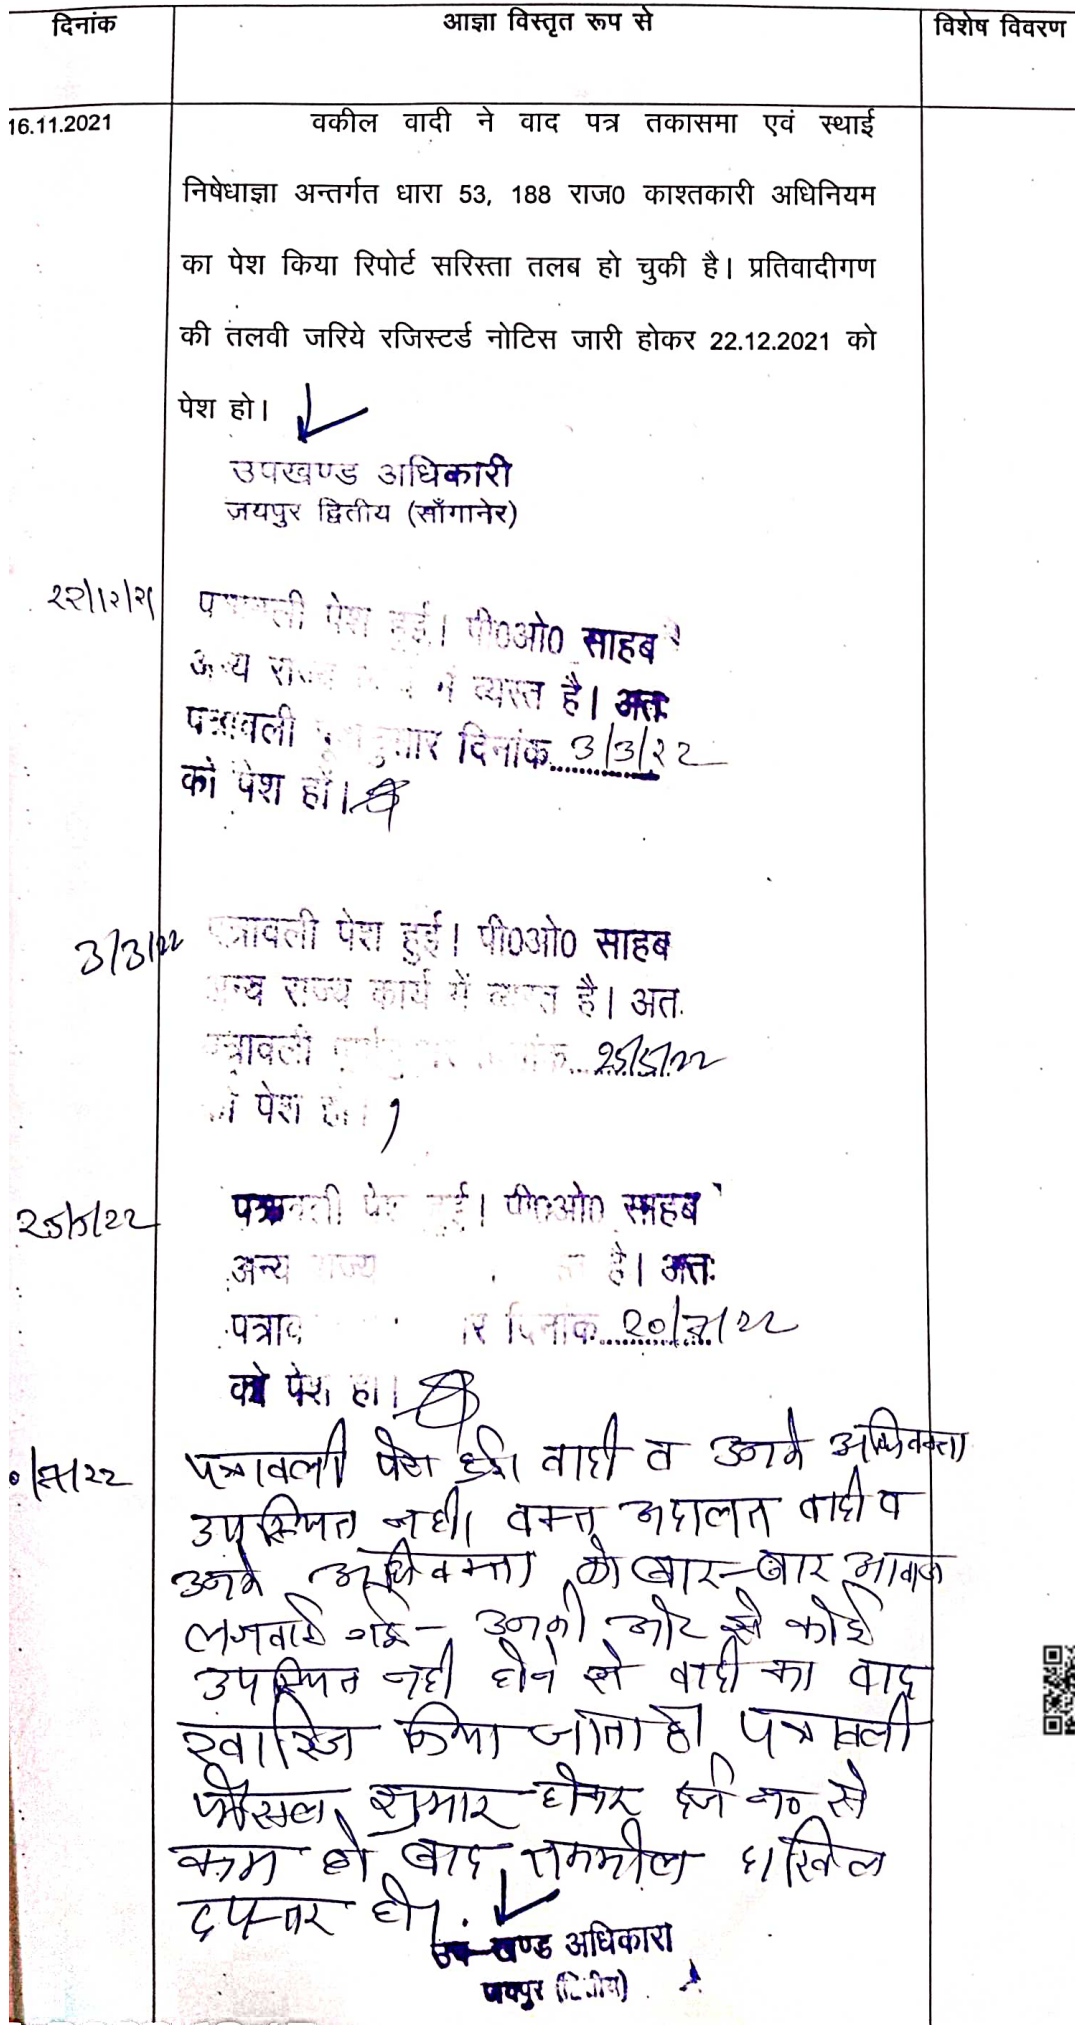 दिनांक आज्ञा विस्तृत रूप से विशेष विवरण
16.11.2021 वकील वादी ने वाद पत्र तकासमा एवं स्थाई
निषेधाज्ञा अन्तर्गत धारा 53, 188 राज0 काश्तकारी अधिनियम
का पेश किया रिपोर्ट सरिस्ता तलब हो चुकी है। प्रतिवादीगण
की तलवी जरिये रजिस्टर्ड नोटिस जारी होकर 22.12.2021 को
पेश हो।
उपखण्ड अधिकारी
जयपुर द्वितीय (साँगानेर)
२२/१२/२१ पत्रावली पेश हुई। पी0ओ0 साहब
अन्य राज्य में व्यस्त है। अतः
पत्रावली दिनांक 3/3/२२
को पेश हों।
3/3/22 पत्रावली पेश हुई। पी0ओ0 साहब
अन्य राज्य कार्य में व्यस्त है। अतः
पत्रावली 25/5/22
को पेश हो।
25/5/22 पत्रावली पेश हुई। पी0ओ0 साहब
अन्य राज्य है। अतः
दिनांक 20/7/22
को पेश हो।
/7/22 पत्रावली पेश हुई। वादी व उनके अधिवक्ता
उपस्थित नही। वक्त अदालत वादी व
उनके अधिवक्ता को बार-बार आवाज
लगवाई गई- उनकी ओर से कोई
उपस्थित नही होने से वादी का वाद
खारिज किया जाता है। पत्रावली
फैसल शुमार होकर दर्ज न० से
कम हो बाद तकमील दाखिल
दफ्तर हो।
उप खण्ड अधिकारी
जयपुर (द्वितीय)